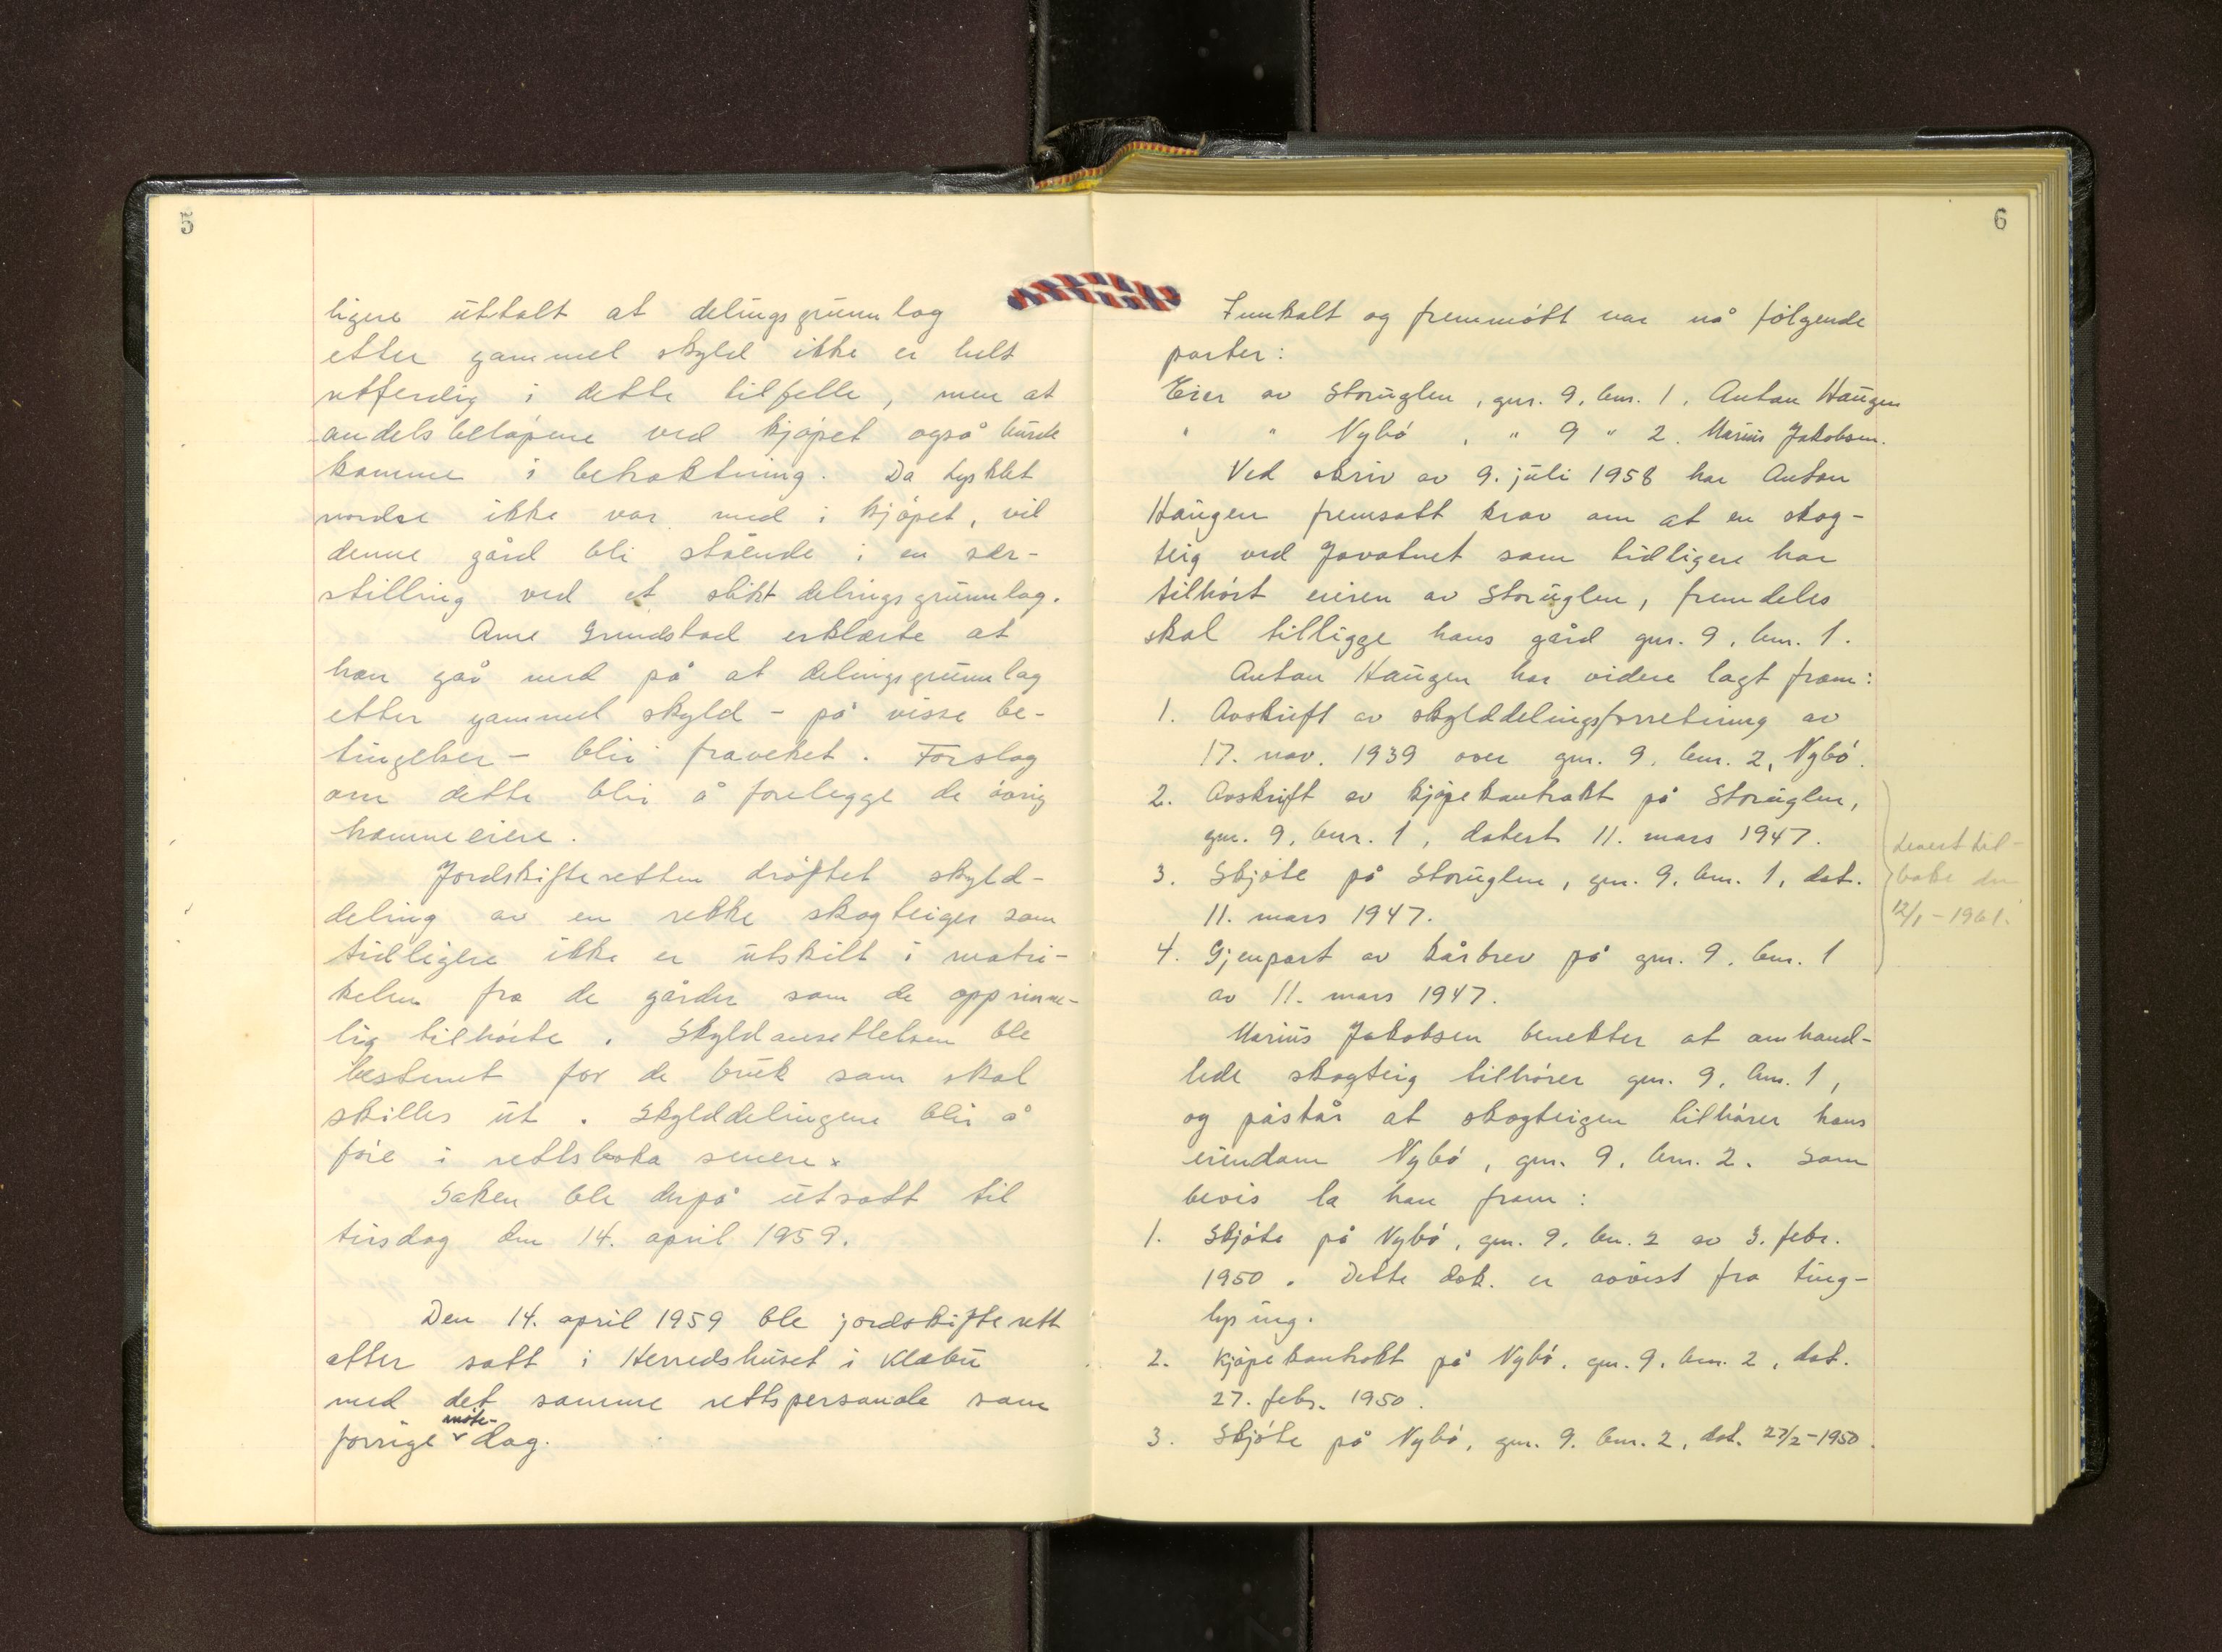 5
ligere uttalt at delingsgrunnlag
etter gammel skyld ikke er helt
rettferdig i dette tilfelle, men at
andelsbeløpene ved kjøpet også burde
komme i betraktning. Da Lysklet
nordre ikke var med i kjøpet, vil
denne gård bli stående i en sær-
stilling ved et slikt delingsgrunnlag.
Arne Grendstad erklærte at
han går med på at delingsgrunnlag
etter gammel skyld - på visse be-
tingelser - blir fraveket. Forslag
om dette blir å forelegge de øvrig
hammeeiere.
Jordskifteretten drøftet skyld-
deling av en rekke skogteiger som
tidligere ikke er utskilt i matri-
kelen fra de gårder som de opprinne-
lig tilhørte. Skyldansettelsen ble
bestemt for de bruk som skal
skilles ut. Skylddelingene blir å
føre i rettsboka senere.
Saken ble derpå utsatt til
tirsdag den 14. april 1959.
Den 14. april 1959 ble jordskifterett
atter satt i Herredshuset i Klæbu
med det samme rettspersonale som
forrige møte-dag.
6
Innkalt og fremmøtt var nå følgende
parter:
Eier av Storuglen, gnr. 9, bnr. 1, Anton Haugen
" " Nybø, " 9 " 2. Marius Jakobsen.
Ved skriv av 9. juli 1958 har Anton
Haugen fremsatt krav om at en skog-
teig ved Jovatnet som tidligere har
tilhørt eieren av Storuglen, fremdeles
skal tilligge hans gård gnr. 9, bnr. 1.
Anton Haugen har videre lagt fram:
1. Avskrift av skylddelingsforretning av
17. nov. 1939 over gnr. 9, bnr. 2, Nybø.
2. Avskrift av kjøpekontrakt på Storuglen,
gnr. 9, bnr. 1, datert 11. mars 1947.
3. Skjøte på Storuglen, gnr. 9, bnr. 1, dat.
11. mars 1947.
4. Gjenpart av kårbrev på gnr. 9, bnr. 1
av 11. mars 1947.
levert til-
bake den
12/1-1961.
Marius Jakobsen benekter at omhand-
lede skogteig tilhører gnr. 9, bnr. 1,
og påstår at skogteigen tilhører hans
eiendom Nybø, gnr. 9, bnr. 2. Som
bevis la han fram:
1. Skjøte på Nybø, gnr. 9, bnr. 2 av 3. febr.
1950. Dette dok. er avvist fra ting-
lysing.
2. Kjøpekontrakt på Nybø, gnr. 9, bnr. 2, dat.
27. febr. 1950.
3. Skjøte på Nybø, gnr. 9, bnr. 2, dat. 27/2-1950.